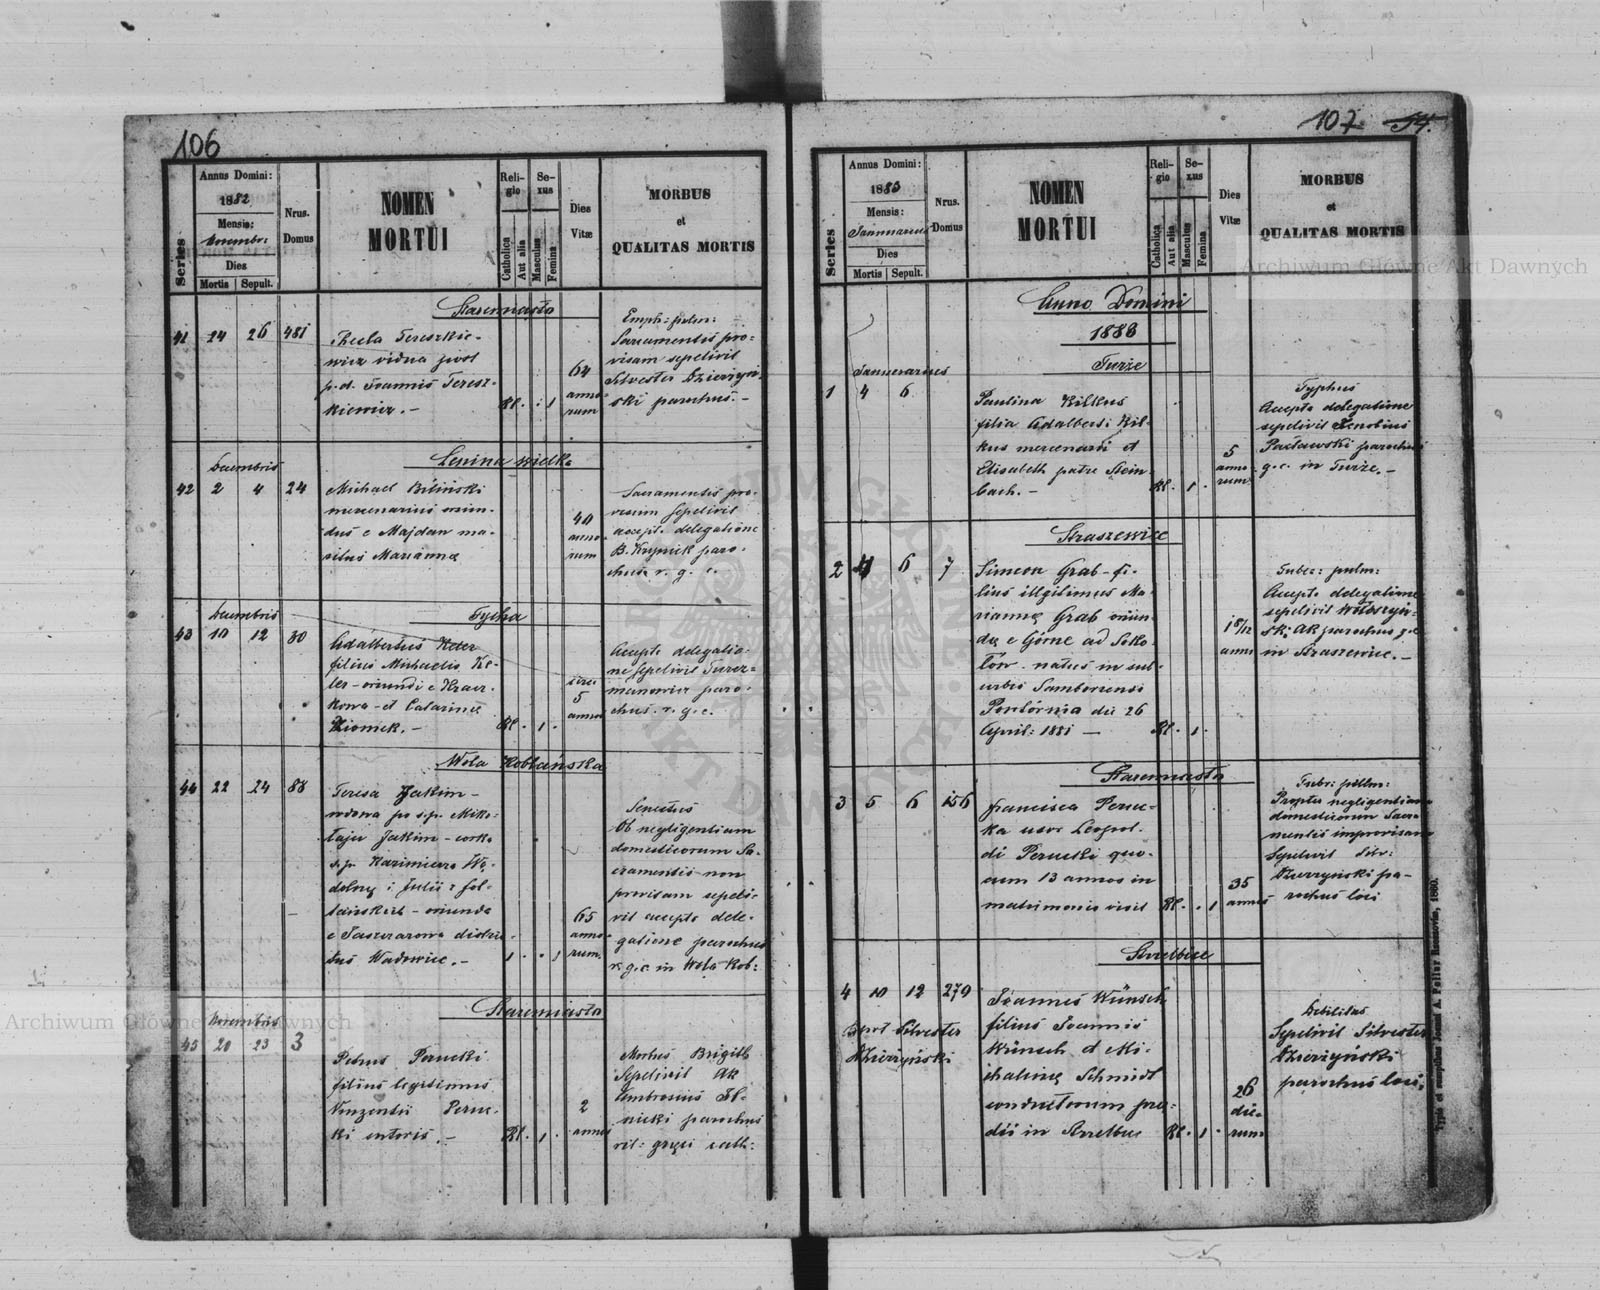 106
Annus Domini:
1882
Mensis:
Novembr:
Dies
Mortis Sepult.
Series
Nrus.
Domus
NOMEN
MORTUI
Religio
Catholica
Aut alia
Sexus
Masculus
Femina
Dies
Vitæ
MORBUS
et
QUALITAS MORTIS
Staremiasto
41 24 26 481
Thecla Tereszkie-
wicz vidua
p.d. Joannis Teresz-
kiewicz.-
Rl. . 1
64
anno-
rum
Emph: pulm:
Sacramentis pro-
visam sepelivit
Silvester Dzierzyń-
ski parochus.-
Lenina wielka
Decembris
42 2 4 24
Michael Biliński
mercenarius oriun-
dus e Majdan ma-
ritus Marianna
40
anno-
rum
Sacramentis pro-
visum sepelivit
accept. delegatione
B. Krynick paro-
chus r. g. c.
Tycha
Decembris
43 10 12 30
Adalbertus Keler
filius Michaelis Ke-
ler - oriundi e
et Catarina
Ziomek.-
Rl. 1.
5
annor
Accepta delegatio-
ne sepelivit Turcz-
manowicz paro-
chus. r. g. c.
Wola Koblańska
44 22 24 88
Teresa Jakim -
wdowa po ś.p. Miko-
łaju Jakim - córka
ś.p. Kazimierza
i Julii z
- oriunda
e distric-
tus Wadowice.-
1 . . 1
65
anno-
rum.
Senectus
Ob negligentiam
domesticorum Sa-
cramentis non
provisam sepeli-
vit accepta dele-
gatione parochus
r. g. c. in Wola Kob:
Staremiasto
Novembris
45 20 23 3
Petrus Perucki
filius legitimus
Vinzentii Peruc-
ki sutoris.-
Rl. 1.
2
annor
Morbus Brigth
Sepelivit
Ambrosius
parochus
rit: græci cath:
107 54.
Annus Domini:
1883
Mensis:
Januarius
Dies
Mortis Sepult.
Series
Nrus.
Domus
NOMEN
MORTUI
Religio
Catholica
Aut alia
Sexus
Masculus
Femina
Dies
Vitæ
MORBUS
et
QUALITAS MORTIS
Archiwum Główne Akt Dawnych
Anno Domini
1883
Turze
Januarius
1 4 6
Paulina Kilkus
filia Adalberti Kil-
kus mercenarii et
Elisabeth patre Stein-
bach.-
Rl. 1.
5
anno-
rum
Typhus
Accepta delegatione
sepelivit Zenobius
Pacławski parochus
g.c. in Turze.-
Straszewice
2 4 6 7
Simeon Grab - fi-
lius illgitimus Ma-
riannę Grab oriun-
dę e Górne ad Soko-
łów - natus in sub-
urbio Samboriensi
die 26
April: 1881 —
Rl. 1.
1 8/12
anni
Tuber: pulm:
Accepta delegatione
sepelivit Wołoszyń-
ski parochus g.c
in Straszewice.-
Staremiasto
3 5 6 156
Francisca Peruc-
ka uxor Leopol-
di Perucki quo-
cum 13 annos in
matrimonio vixit
Rl. . 1
35
annos
Tubr: pulm:
Propter negligentiam
domesticorum Sacra-
mentis improvisam
Sepelivit Silv:
Dzierzyński pa-
rochus loci
Strzelbice
4 10 12 279
Joannes Wünsch
filius Joannis
Wünsch et Mi-
chalinę Schmidt
conductorum præ-
dii in Strzelbice
Bapt Silvester
Dzierzyński
Rl. 1.
26
die-
rum
Debilitas
Sepelivit Silvester
Dzierzyński
parochus loci,
Typis et sumptibus Joanni A. Pellar Rzeszoviæ, 1880.
Archiwum Główne Akt Dawnych